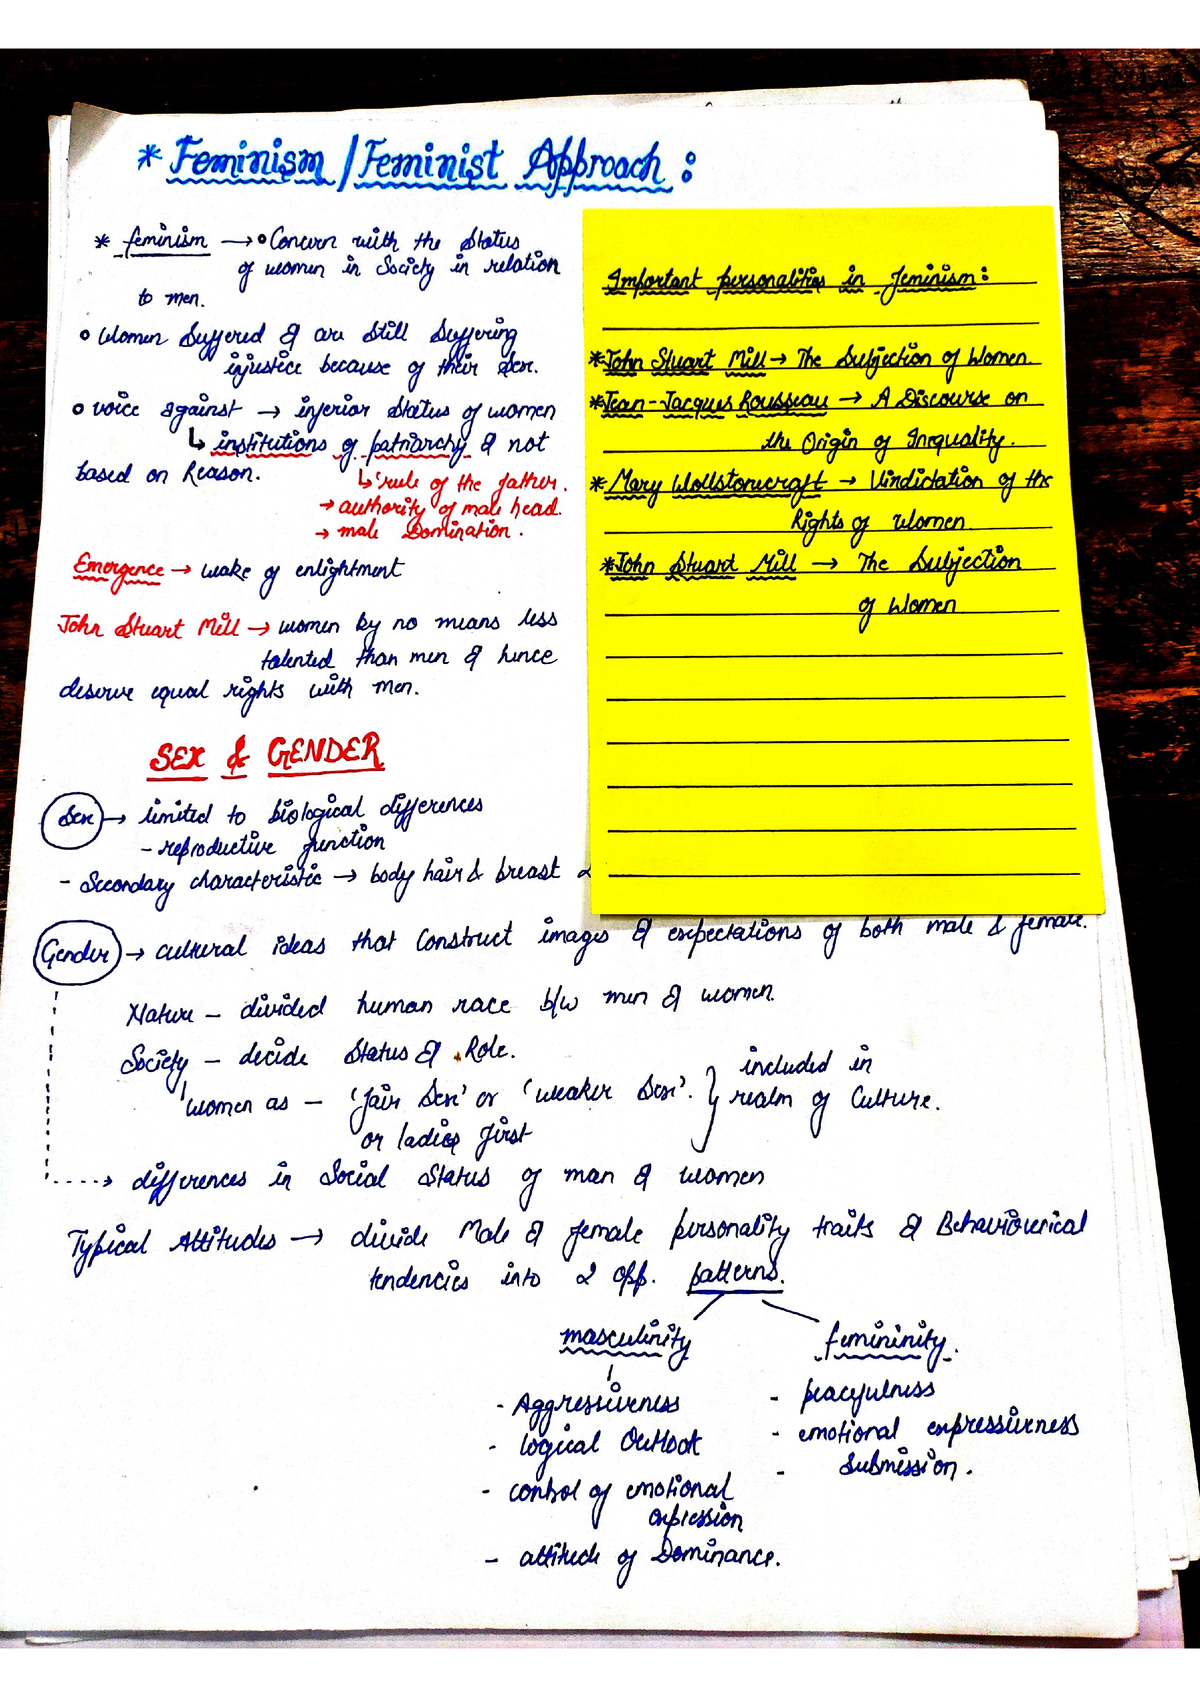 * Feminism / Feminist Approach :
* feminism → Concern with the Status
of women in Society in relation
to men.
Women Suffered & are Still Suffering
injustice because of their Sex.
voice against → inferior Status of women
↳ institutions of patriarchy & not
based on Reason.
↳ rule of the father.
→ authority of male head.
→ male Domination.
Emergence → wake of enlightment
John Stuart Mill → women by no means less
talented than men & hence
deserve equal rights with men.
Important personalities in feminism :
* John Stuart Mill → The Subjection of Women
* Jean-Jacques Rousseau → A Discourse on
the Origin of Inequality.
* Mary Wollstonecraft → Vindictation of the
Rights of Women
* John Stuart Mill → The Subjection
of Women
SEX & GENDER
Sex → limited to biological differences
- reproductive function
- Secondary characteristic → body hair & breast &
Gender → cultural ideas that Construct images & expectations of both male & female.
Nature – divided human race b/w men & women.
Society – decide Status & Role.
women as – 'fair Sex' or 'weaker Sex'.
or ladies first
included in
realm of Culture.
→ differences in Social Status of man & women
Typical Attitudes → divide Male & female personality traits & Behaviourical
tendencies into 2 opp. patterns.
masculinity
- Aggressiveness
- logical Outlook
- control of emotional
expression
- attitude of Dominance.
femininity.
- peacefulness
- emotional expressiveness
- Submission.